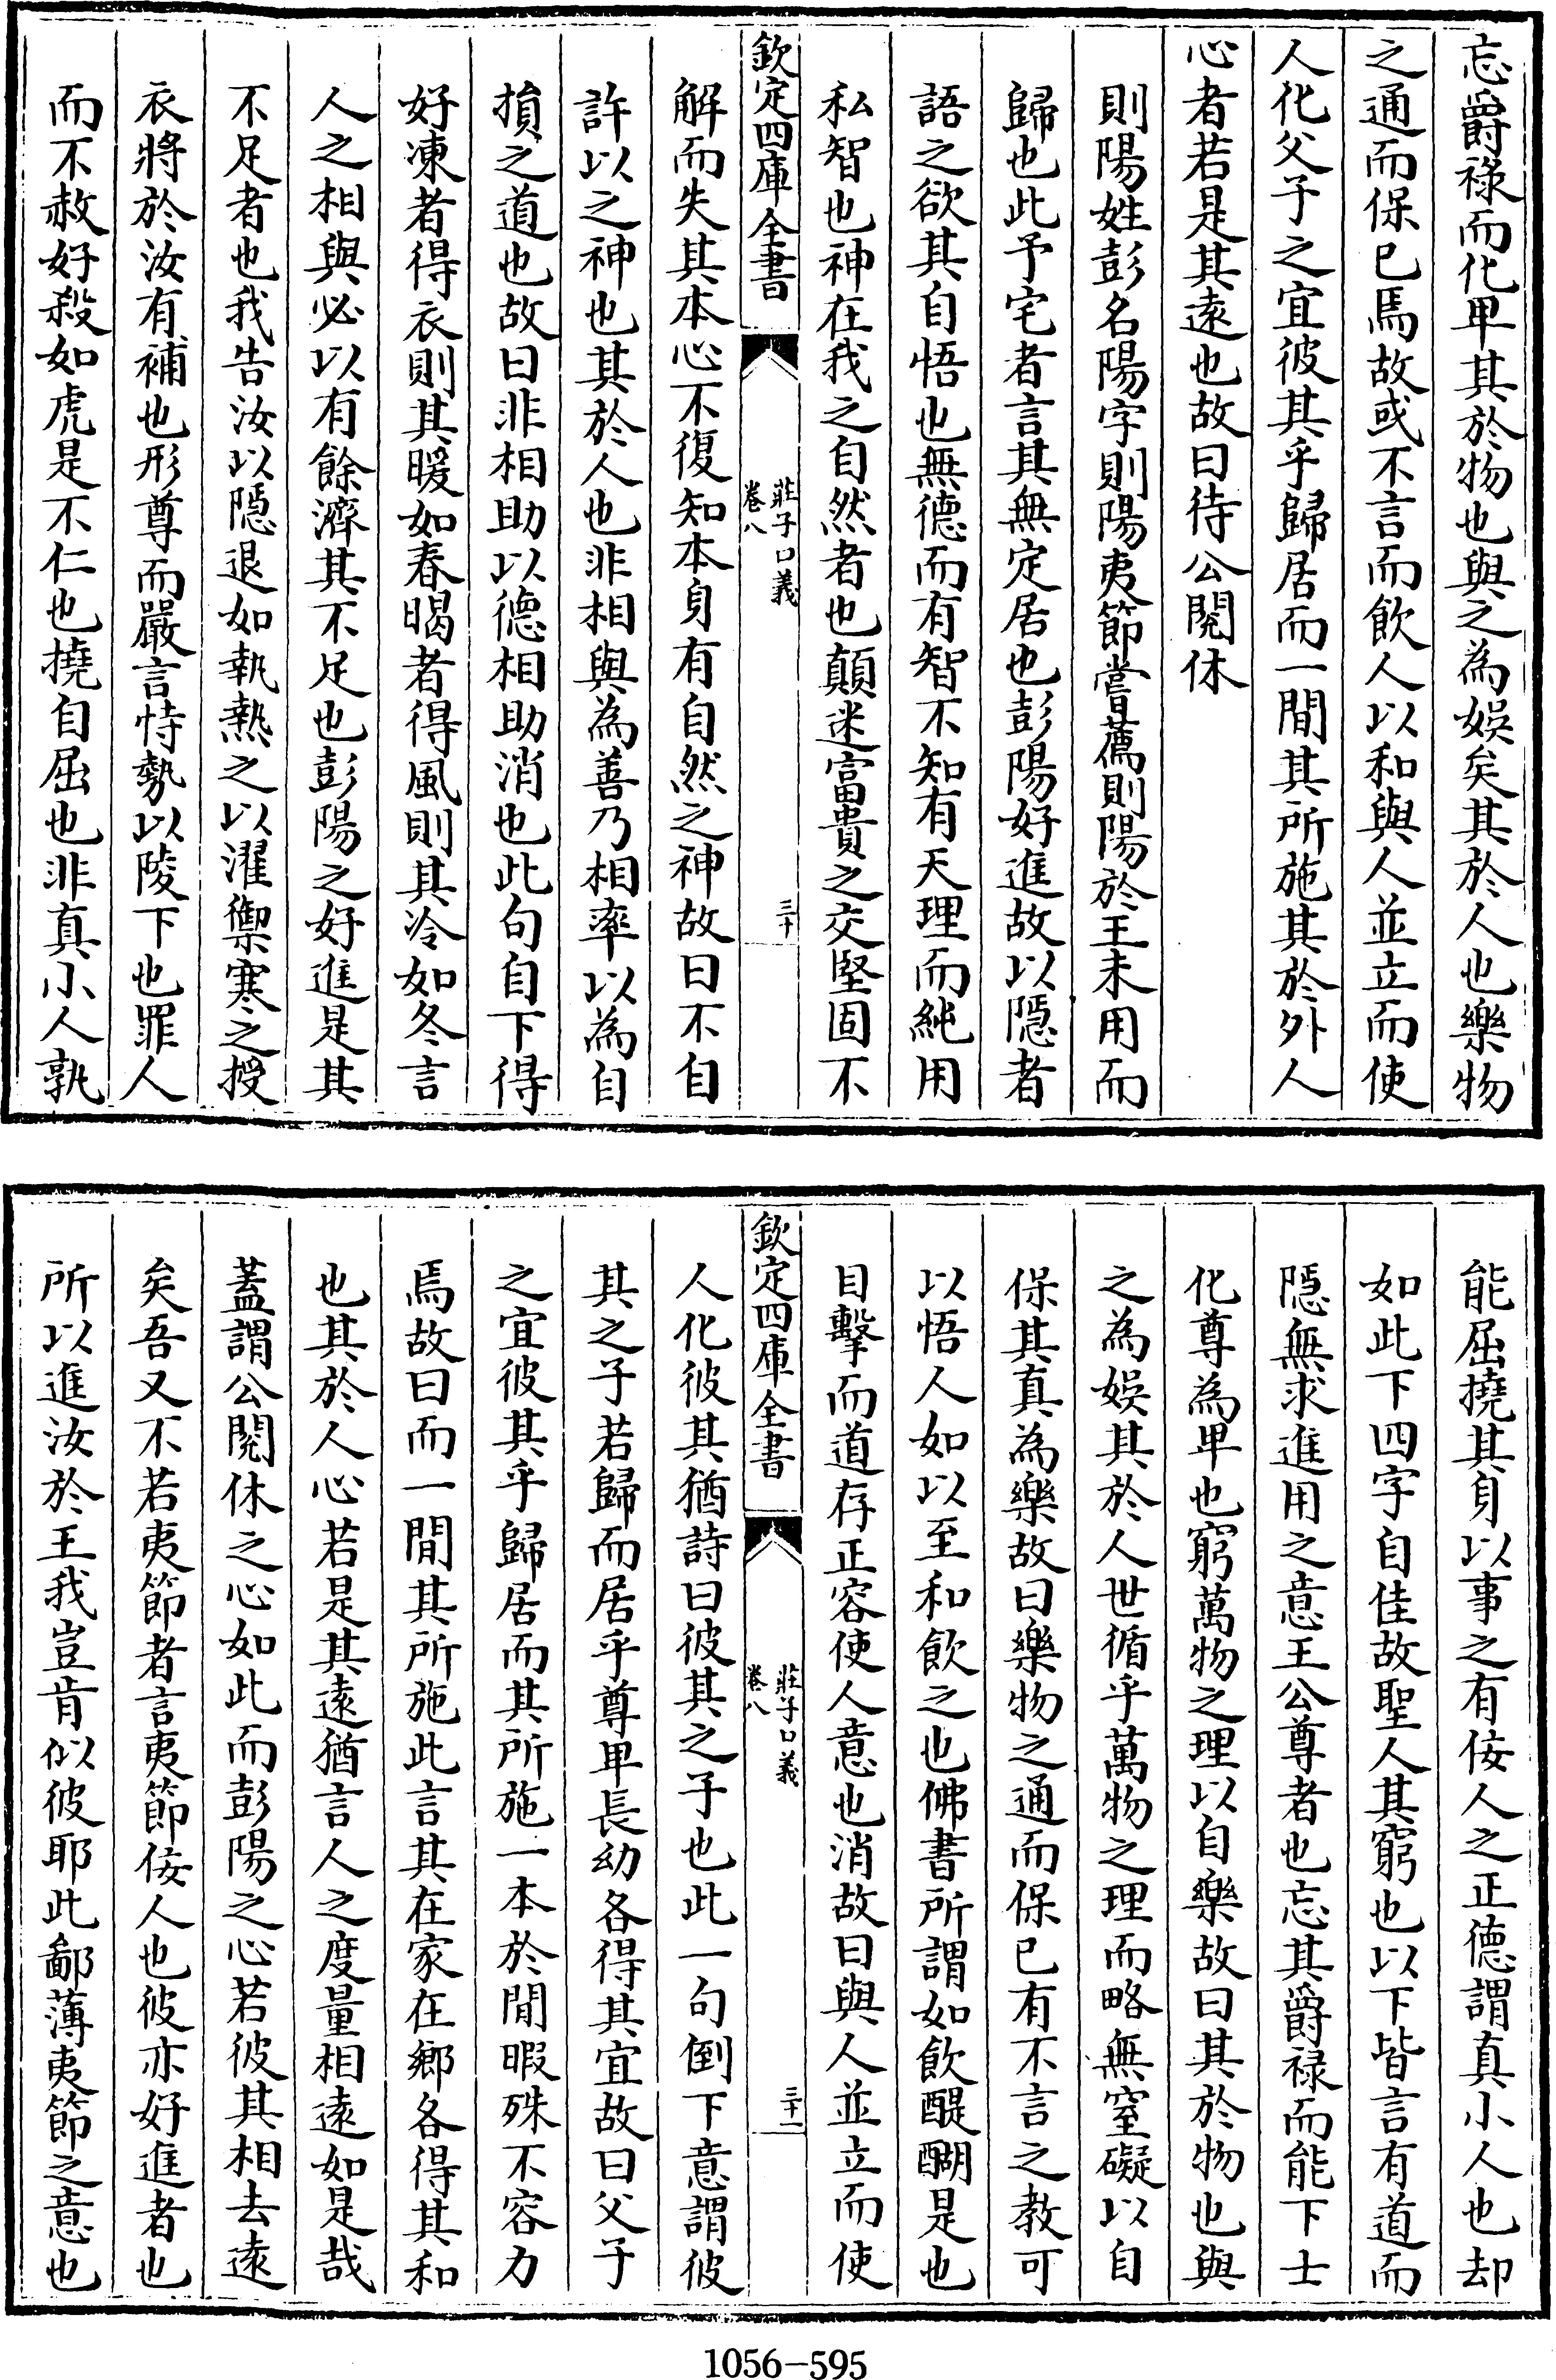 忘爵祿而化卑其於物也與之為娛矣其於人也樂物
之通而保已焉故或不言而飲人以和與人並立而使
人化父子之宜彼其乎歸居而一閒其所施其於外人
心者若是其遠也故曰待公閱休
則陽姓彭名陽字則陽夷節嘗薦則陽於王未用而
歸也此予宅者言其無定居也彭陽好進故以隱者
語之欲其自悟也無德而有智不知有天理而純用
私智也神在我之自然者也顛迷富貴之交堅固不
欽定四庫全書
莊子口義
卷八
三十
解而失其本心不復知本身有自然之神故曰不自
許以之神也其於人也非相與為善乃相率以為自
損之道也故曰非相助以德相助消也此句自下得
好凍者得衣則其暖如春暍者得風則其冷如冬言
人之相與必以有餘濟其不足也彭陽之好進是其
不足者也我告汝以隱退如執熱之以濯禦寒之授
衣將於汝有補也形尊而嚴言恃勢以陵下也罪人
而不赦好殺如虎是不仁也撓自屈也非真小人孰
能屈撓其身以事之有佞人之正德謂真小人也却
如此下四字自佳故聖人其窮也以下皆言有道而
隱無求進用之意王公尊者也忘其爵祿而能下士
化尊為卑也窮萬物之理以自樂故曰其於物也與
之為娛其於人世循乎萬物之理而略無窒礙以自
保其真為樂故曰樂物之通而保已有不言之教可
以悟人如以至和飲之也佛書所謂如飲醍醐是也
目擊而道存正容使人意也消故曰與人並立而使
欽定四庫全書
莊子口義
卷八
三十一
人化彼其猶詩曰彼其之子也此一句倒下意謂彼
其之子若歸而居乎尊卑長幼各得其宜故曰父子
之宜彼其乎歸居而其所施一本於閒暇殊不容力
焉故曰而一閒其所施此言其在家在鄉各得其和
也其於人心若是其遠猶言人之度量相遠如是哉
蓋謂公閱休之心如此而彭陽之心若彼其相去遠
矣吾又不若夷節者言夷節佞人也彼亦好進者也
所以進汝於王我豈肯似彼耶此鄙薄夷節之意也
1056-595